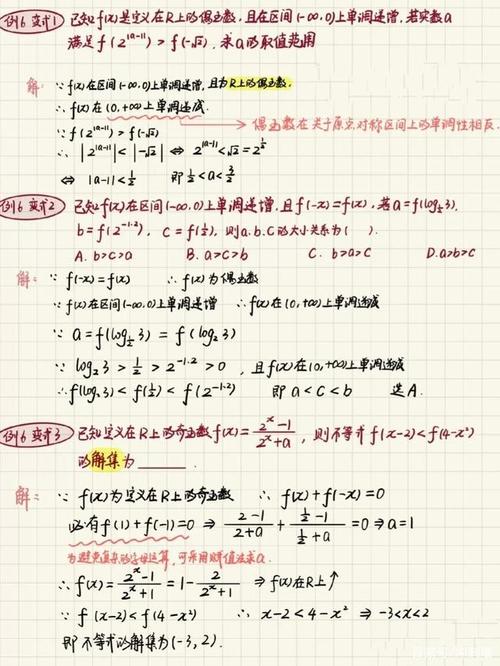 例6 变式1 已知f(x)是定义在R上的偶函数，且在区间(-∞,0)上单调递增，若实数a
满足 f(2^{|a-1|}) > f(-√2)，求a的取值范围
解： ∵ f(x)在区间(-∞,0)上单调递增，且为R上的偶函数，
∴ f(x)在(0,+∞)上单调递减
∵ f(2^{|a-1|}) > f(-√2) → 偶函数在关于原点对称区间上的单调性相反.
∴ |2^{|a-1|}| < |-√2| ⇔ 2^{|a-1|} < √2 = 2^{1/2}
⇔ |a-1| < 1/2 即 1/2 < a < 3/2
例6 变式2 已知f(x)在区间(-∞,0)上单调递增，且f(-x)=f(x)，若a=f(log_{1/2}3),
b=f(2^{-1.2}), c=f(1/2), 则a.b.c的大小关系为( ).
A. b>c>a B. a>c>b C. b>a>c D. a>b>c
解： ∵ f(-x)=f(x) ∴ f(x)为偶函数
∵ f(x)在区间(-∞,0)上单调递增 ∴ f(x)在(0,+∞)上单调递减
∵ a=f(log_{1/2}3) = f(log_2 3)
∵ log_2 3 > 1/2 > 2^{-1.2} > 0 , 且f(x)在(0,+∞)上单调递减
∴ f(log_2 3) < f(1/2) < f(2^{-1.2}) 即 a<c<b 选A.
例6 变式3 已知定义在R上的奇函数f(x)= (2^x-1)/(2^x+a) , 则不等式f(x-2)<f(4-x²)
的解集为______.
解： ∵ f(x)为定义在R上的奇函数 ∴ f(x)+f(-x)=0
必有f(1)+f(-1)=0 ⇒ (2-1)/(2+a) + (1/2-1)/(1/2+a) = 0 ⇒ a=1
为避免复杂的字母运算，可采用赋值法求a.
∴ f(x)= (2^x-1)/(2^x+1) = 1- 2/(2^x+1) ⇒ f(x)在R上↑
∵ f(x-2)<f(4-x²) ∴ x-2<4-x² ⇒ -3<x<2
即不等式的解集为(-3,2).